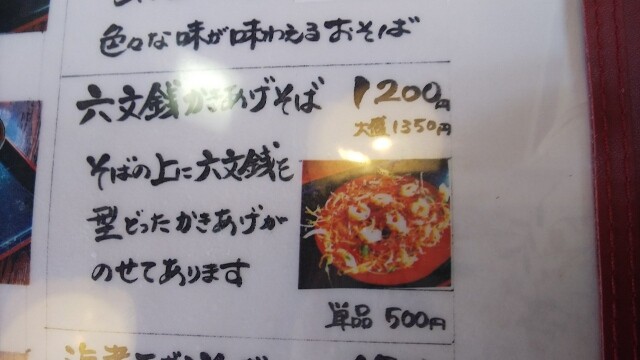 色々な味が味わえるおそば
六文銭かきあげそば 1200円
大盛 1350円
そばの上に六文銭を
型どったかきあげが
のせてあります
単品 500円